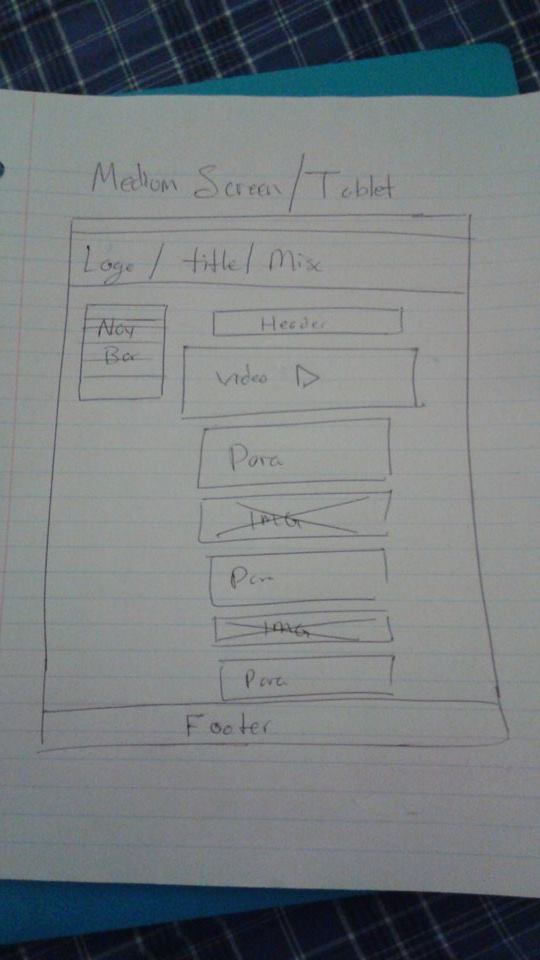 Medium Screen/Tablet
Logo / title/ Misc
Nav
Bar
Header
Video
Para
IMG
Para
IMG
Para
Footer